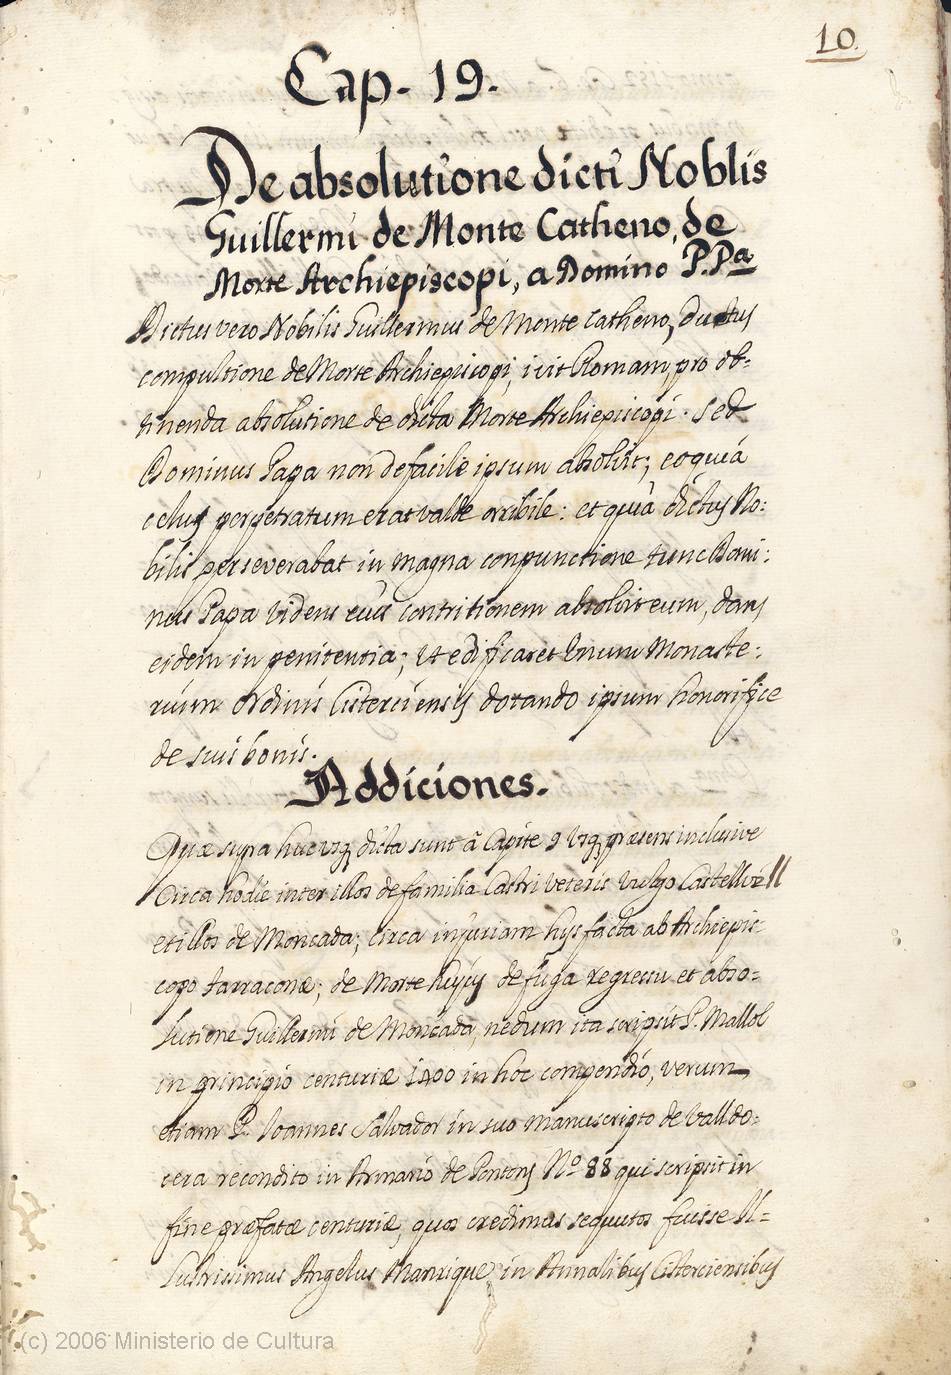 10
Cap. 19.
De absolutione dicti Noblis
Guillermi de Monte Catheno, de
Morte Archiepiscopi, a Domino P.Pa
Dictus vero Nobilis Guillermus de Monte Catheno, ductus
compultione de Morte Archiepiscopi, ivit Romam, pro ob=
tinenda absolutione de dicta Morte Archiepiscopi. sed
Dominus Papa non de facilè ipsum absolvit; eo quia
celus perpetratum erat valde orribile: et quia dictus No:
bilis perseverabat in magna conpunctione tunc Domi:
nus Papa videns eius contritionem absolvit eum, dans
eidem in penitentia; Vt edificaret Vnum Monaste:
rium Ordinis Cisterciensis dotando ipsum honorifice
de suis bonis.
Addiciones.
Quæ supra huc usq dicta sunt â Capite 9 usq præsens inclusive
Circa hodie inter illos de familia Castri veteris vulgo Castellvell
et illos de Moncada; circa injuriam hijs facta ab Archiepis:
copo tarraconæ; de Morte hujus de fuga regressu et abso=
lutione Guillermi de Moncada, nedum ita scripsit P. Mallol
in principio centuriæ 1400 in hoc compendio, verum
etiam P. Ioannes Salvador in suo manuscripto de Valldo:
cera recondito in Armario de Pontons Nº 88 qui scripsit in
fine præfatæ centuriæ, quos credimus sequutos fuisse Il=
lustrissimus Angelus Manrique in Annalibus Cisterciensibus
(c) 2006 Ministerio de Cultura